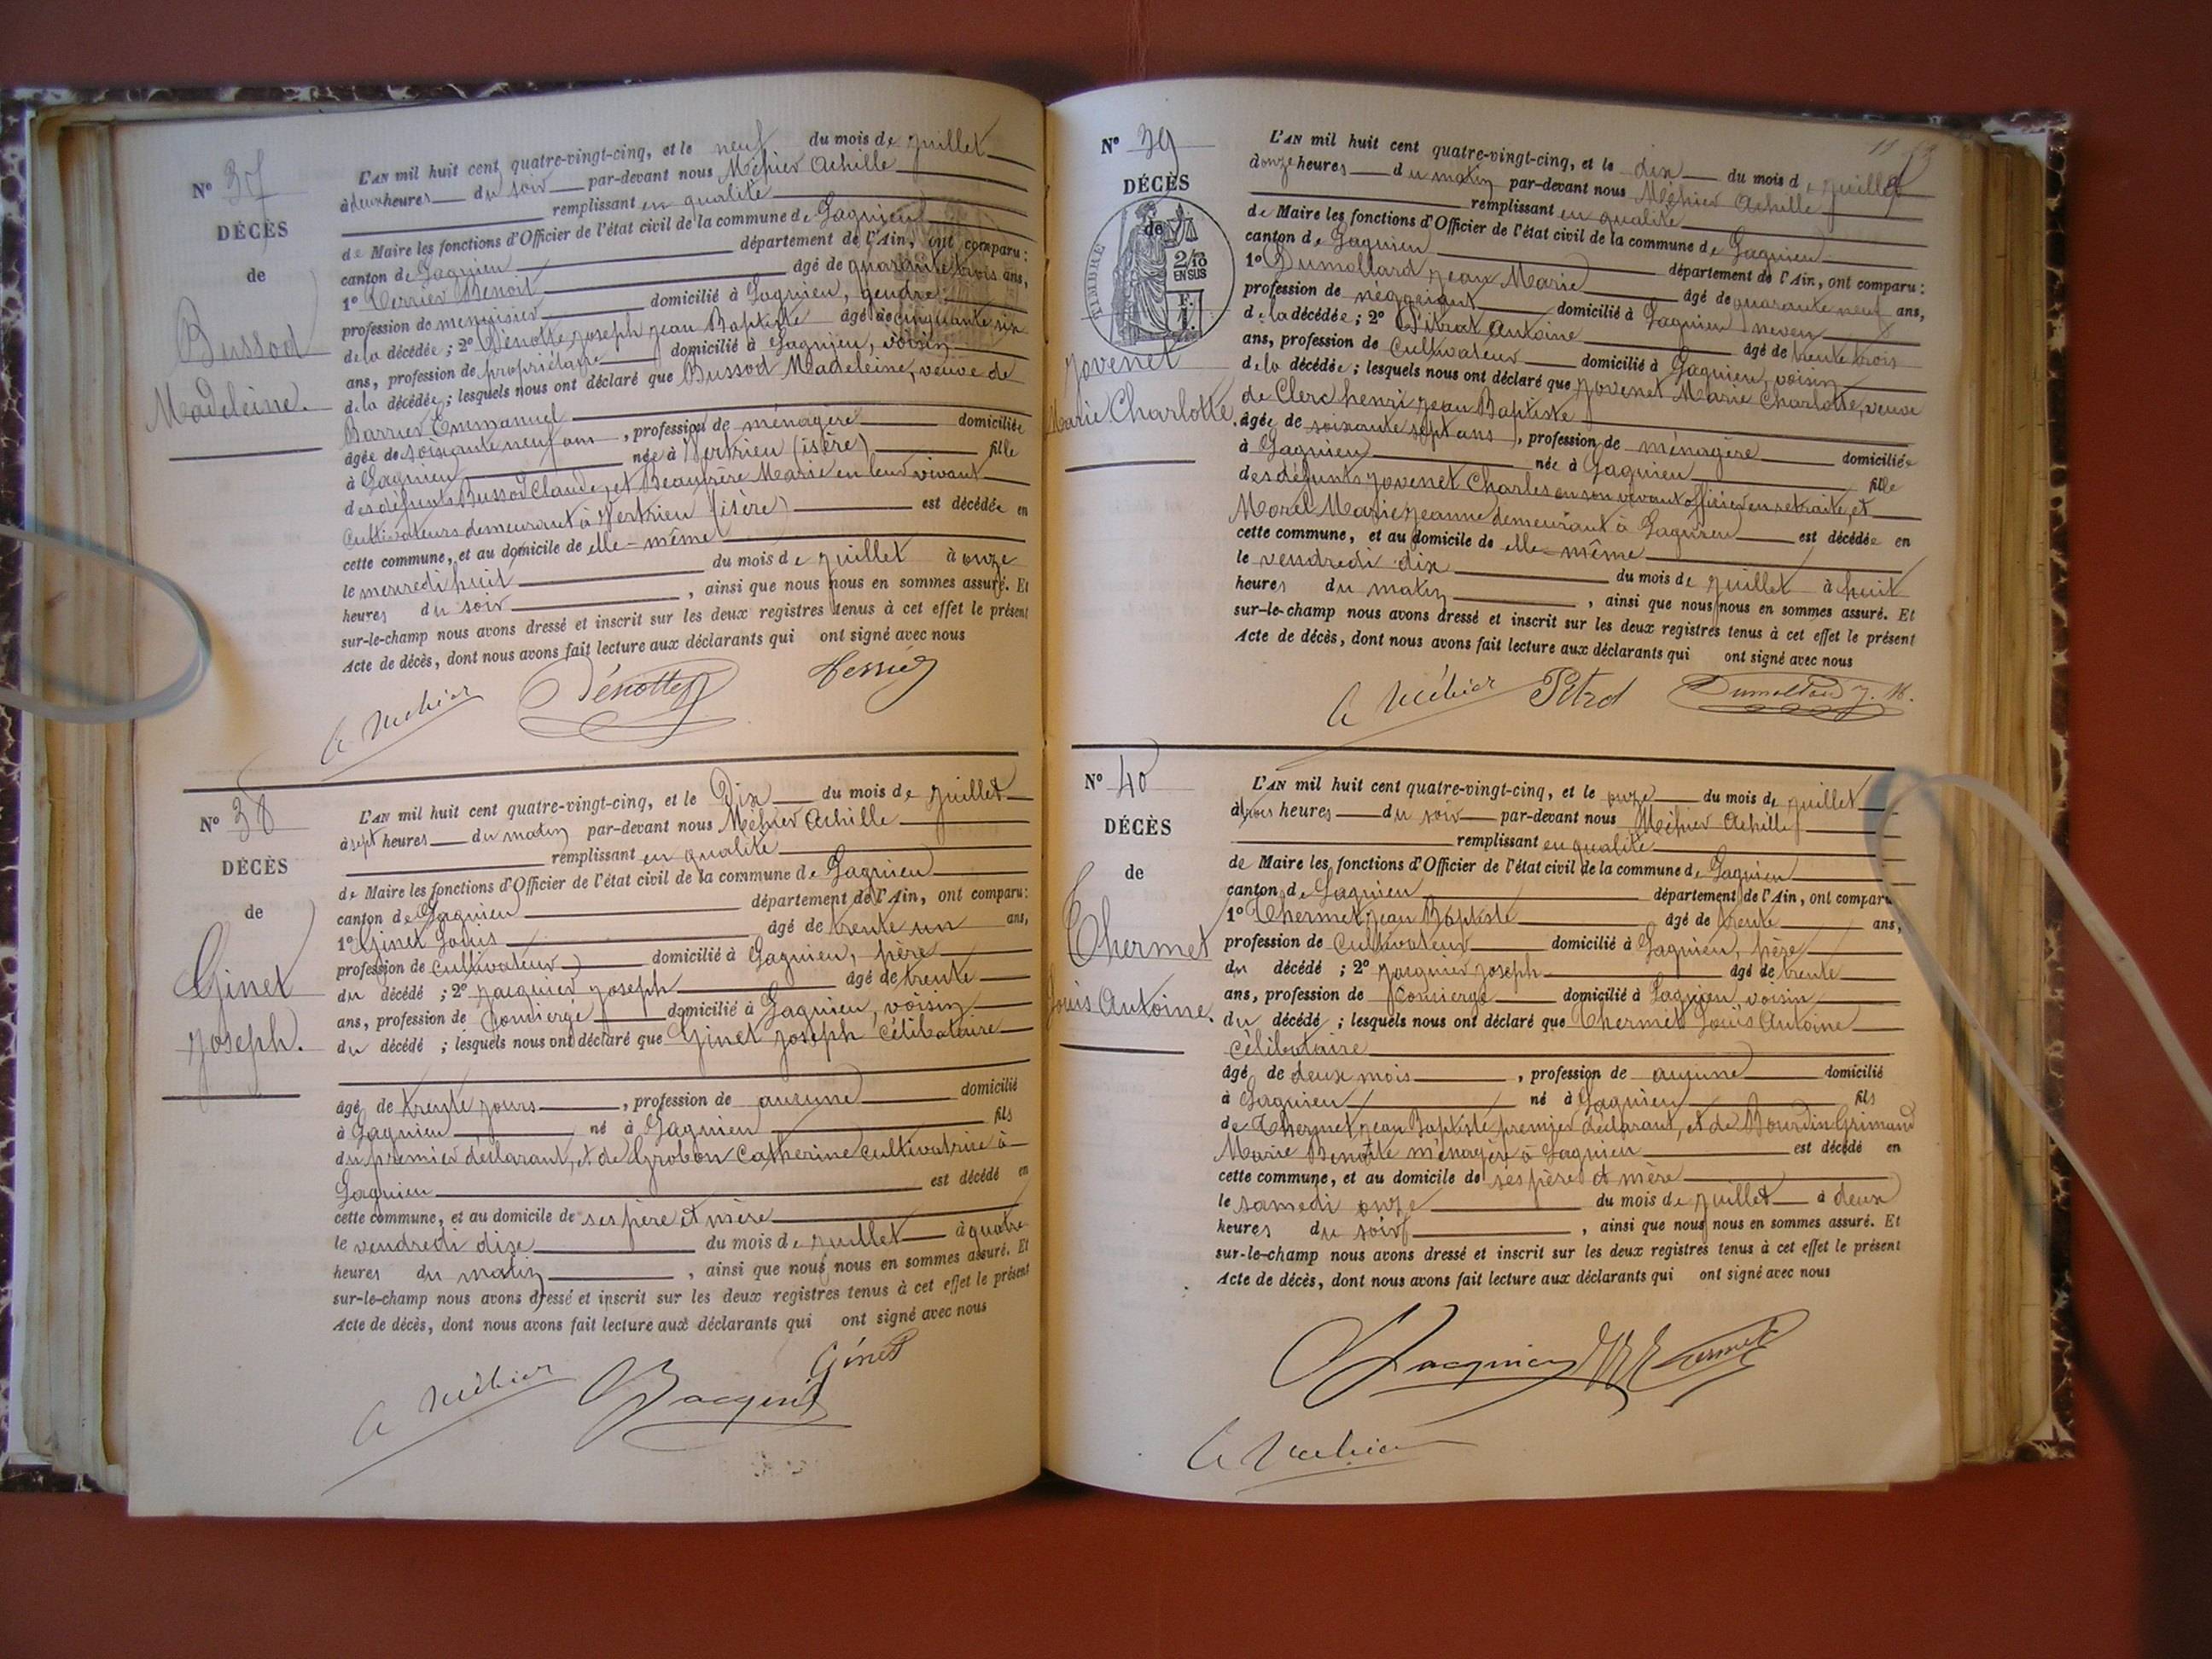 N° 37
DÉCÈS
de
Bussod
Madeleine.
L'AN mil huit cent quatre-vingt-cinq, et le neuf du mois de juillet
à deux heures du soir par-devant nous Méhier Achille
remplissant en qualité
de Maire les fonctions d'Officier de l'état civil de la commune de Lagnieu
canton de Lagnieu département de l'Ain, ont comparu :
1° Benoit âgé de quarante trois ans,
profession de menuisier domicilié à Lagnieu, gendre
de la décédée ; 2° Dénotte Joseph Jean Baptiste âgé de cinquante six
ans, profession de propriétaire domicilié à Lagnieu, voisin
de la décédée ; lesquels nous ont déclaré que Bussod Madeleine, veuve de
Barrier Emmanuel
âgée de soixante neuf ans , profession de ménagère domiciliée
à Lagnieu née à Vertrieu (isère) fille
des défunts Bussod Claude, et Beaufrère Marie en leur vivant
Cultivateurs demeurant à Vertrieu (isère) est décédée en
cette commune, et au domicile de elle-même
le mercredi huit du mois de juillet à onze
heures du soir , ainsi que nous nous en sommes assuré. Et
sur-le-champ nous avons dressé et inscrit sur les deux registres tenus à cet effet le présent
Acte de décès, dont nous avons fait lecture aux déclarants qui ont signé avec nous
A Méhier Dénotte
N° 38
DÉCÈS
de
Ginet
Joseph.
L'AN mil huit cent quatre-vingt-cinq, et le Dix du mois de juillet
à sept heures du matin par-devant nous Méhier Achille
remplissant en qualité
de Maire les fonctions d'Officier de l'état civil de la commune de Lagnieu
canton de Lagnieu département de l'Ain, ont comparu :
1° Ginet Louis âgé de trente un ans,
profession de Cultivateur domicilié à Lagnieu, père
du décédé ; 2° Jacquier Joseph âgé de trente
ans, profession de Concierge domicilié à Lagnieu, voisin
du décédé ; lesquels nous ont déclaré que Ginet Joseph Célibataire
âgé de trente jours , profession de aucune domicilié
à Lagnieu né à Lagnieu fils
du premier déclarant, et de Grobon Catherine Cultivatrice à
Lagnieu est décédé en
cette commune, et au domicile de ses père et mère
le vendredi dix du mois de juillet à quatre
heures du matin , ainsi que nous nous en sommes assuré. Et
sur-le-champ nous avons dressé et inscrit sur les deux registres tenus à cet effet le présent
Acte de décès, dont nous avons fait lecture aux déclarants qui ont signé avec nous
A Méhier Jacquier Ginet
N° 39
DÉCÈS
de
TIMBRE
2/10
EN SUS
Jovenet
Marie Charlotte.
L'AN mil huit cent quatre-vingt-cinq, et le dix du mois de juillet
à onze heures du matin par-devant nous Méhier Achille
remplissant en qualité
de Maire les fonctions d'Officier de l'état civil de la commune de Lagnieu
canton de Lagnieu département de l'Ain, ont comparu :
1° Dumollard Jean Marie âgé de quarante neuf ans,
profession de négociant domicilié à Lagnieu neveu
de la décédée ; 2° Pitrat Antoine âgé de trente trois
ans, profession de Cultivateur domicilié à Lagnieu, voisin
de la décédée ; lesquels nous ont déclaré que Jovenet Marie Charlotte, veuve
de Clerc henri Jean Baptiste
âgée de soixante sept ans , profession de ménagère domiciliée
à Lagnieu née à Lagnieu fille
des défunts Jovenet Charles en son vivant officier en retraite, et
Morel Marie Jeanne demeurant à Lagnieu est décédée en
cette commune, et au domicile de elle-même
le vendredi dix du mois de juillet à huit
heures du matin , ainsi que nous nous en sommes assuré. Et
sur-le-champ nous avons dressé et inscrit sur les deux registres tenus à cet effet le présent
Acte de décès, dont nous avons fait lecture aux déclarants qui ont signé avec nous
A Méhier Dumollard J. M.
N° 40
DÉCÈS
de
Thermet
Louis Antoine.
L'AN mil huit cent quatre-vingt-cinq, et le onze du mois de juillet
à trois heures du soir par-devant nous Méhier Achille
remplissant en qualité
de Maire les fonctions d'Officier de l'état civil de la commune de Lagnieu
canton de Lagnieu département de l'Ain, ont comparu
1° Thermet Jean Baptiste âgé de trente ans,
profession de Cultivateur domicilié à Lagnieu, père
du décédé ; 2° Jacquier Joseph âgé de trente
ans, profession de Concierge domicilié à Lagnieu, voisin
du décédé ; lesquels nous ont déclaré que Thermet Louis Antoine
Célibataire
âgé de deux mois , profession de aucune domicilié
à Lagnieu né à Lagnieu fils
de Thermet Jean Baptiste premier déclarant, et de Bourdin Grimaud
Marie Benoîte ménagère à Lagnieu est décédé en
cette commune, et au domicile de ses père et mère
le samedi onze du mois de juillet à deux
heures du soir , ainsi que nous nous en sommes assuré. Et
sur-le-champ nous avons dressé et inscrit sur les deux registres tenus à cet effet le présent
Acte de décès, dont nous avons fait lecture aux déclarants qui ont signé avec nous
Jacquier Thermet
A Méhier